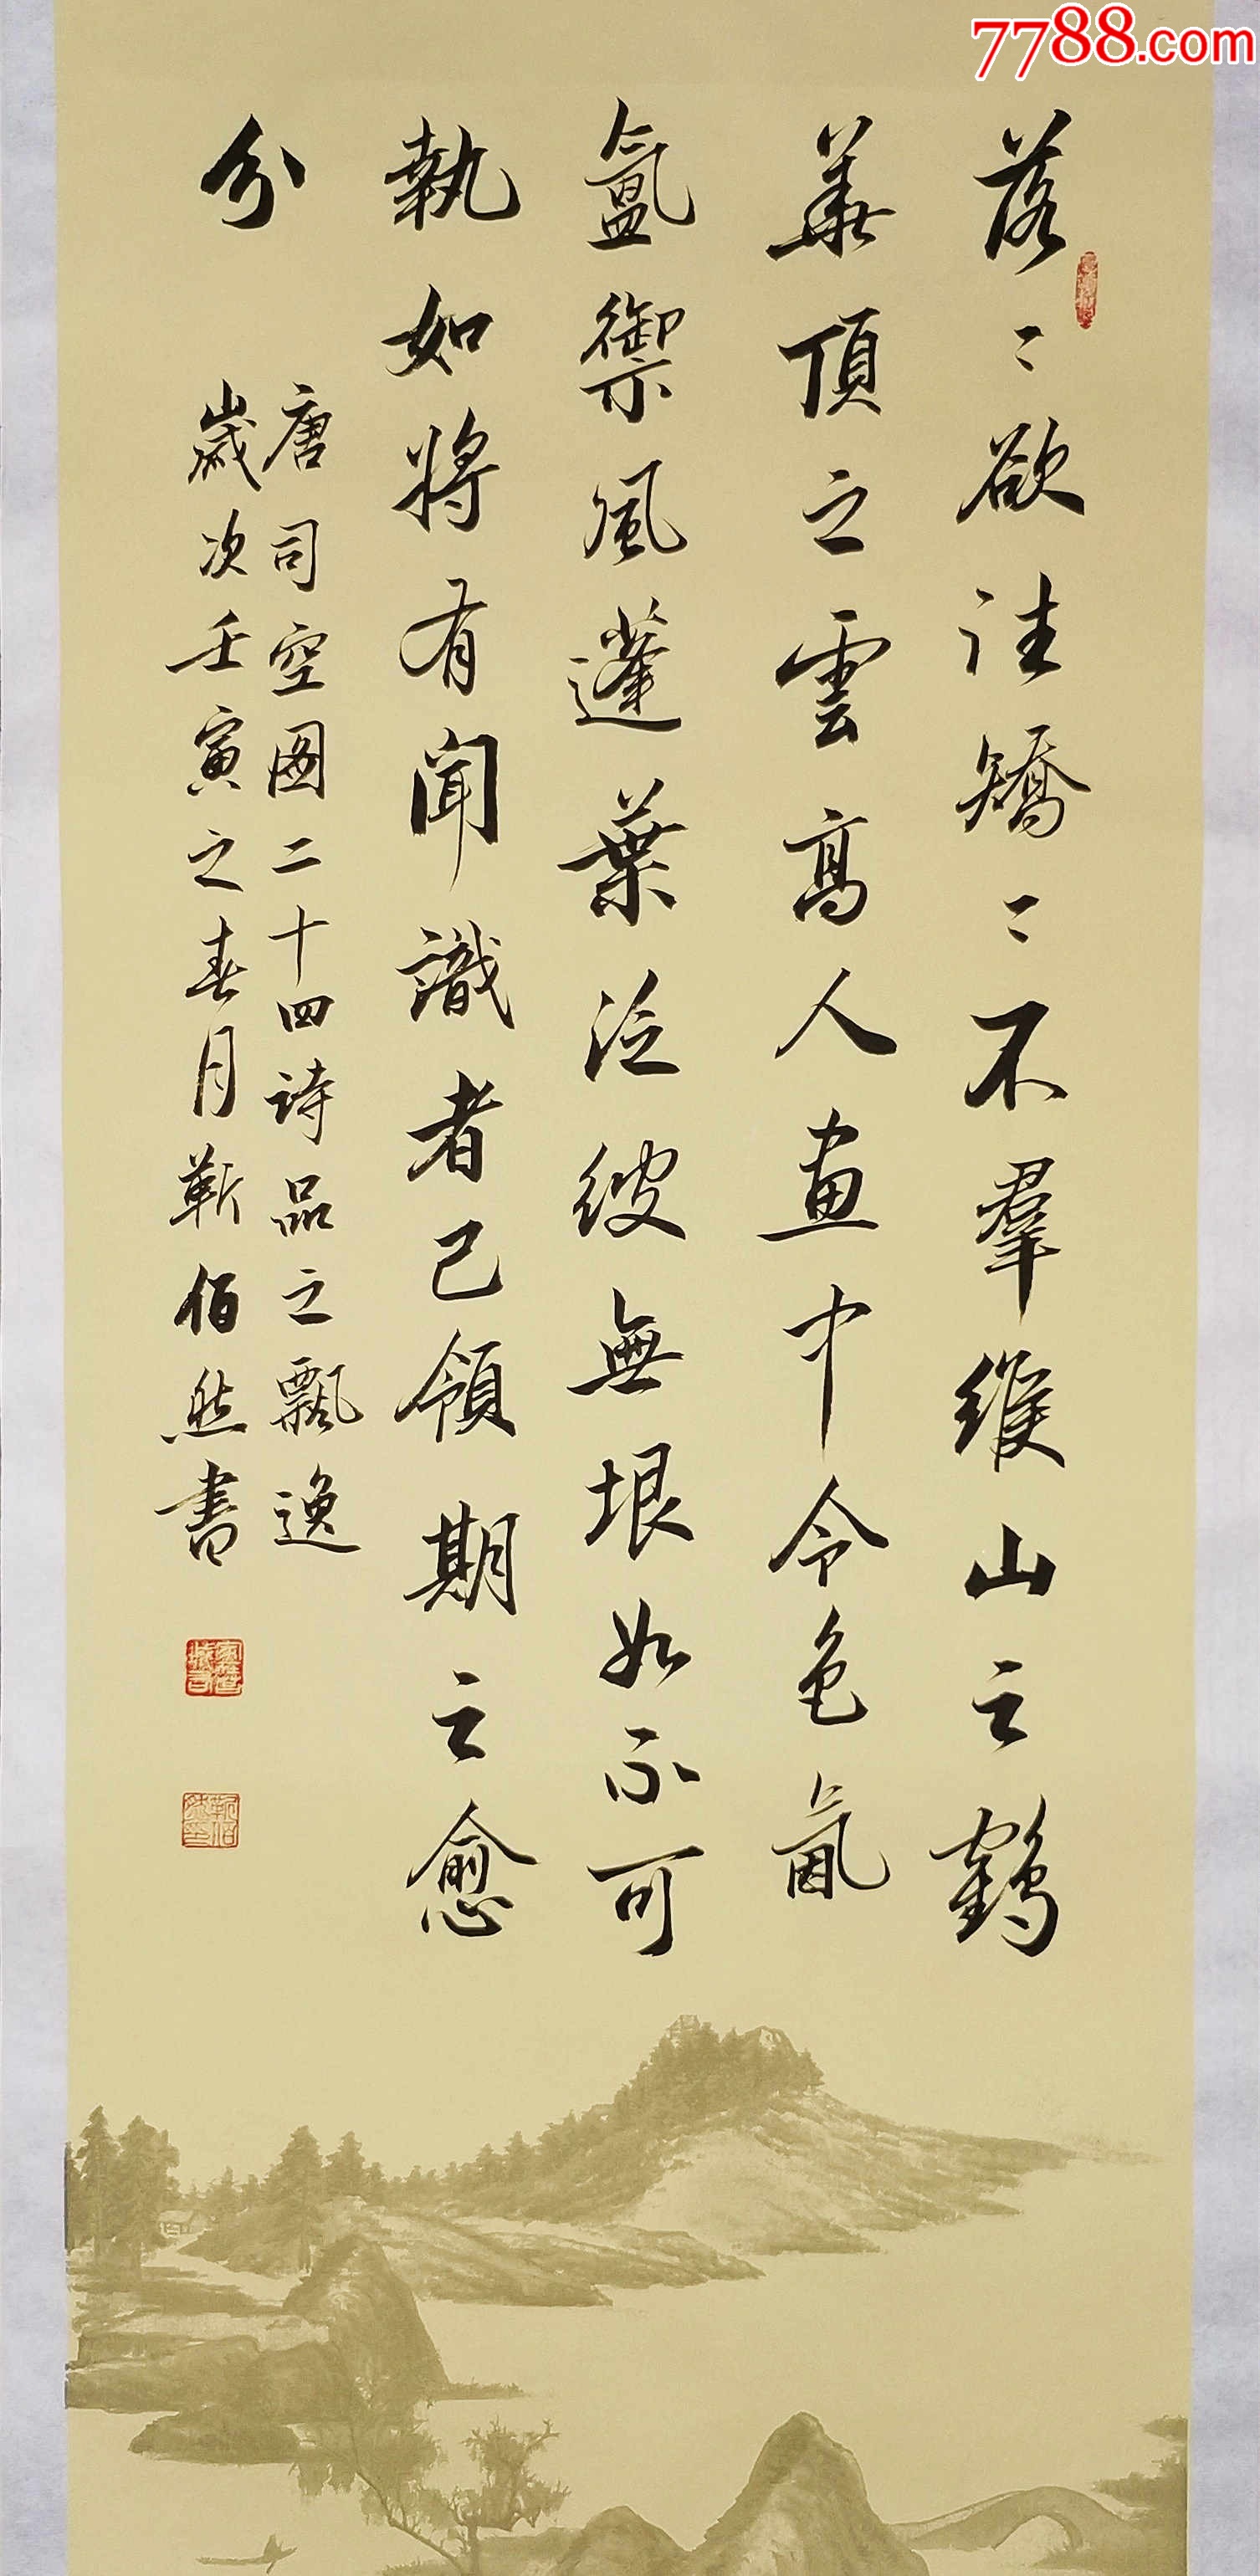 7788.com
落〻欲往矯〻不羣緱山之鶴
華頂之雲高人畫中令色氤
氳禦風蓬葉泛彼無垠如不可
執如將有聞識者已領期之愈
分
唐司空图二十四詩品之飄逸
歲次壬寅之春月靳佰然書
靳佰然印